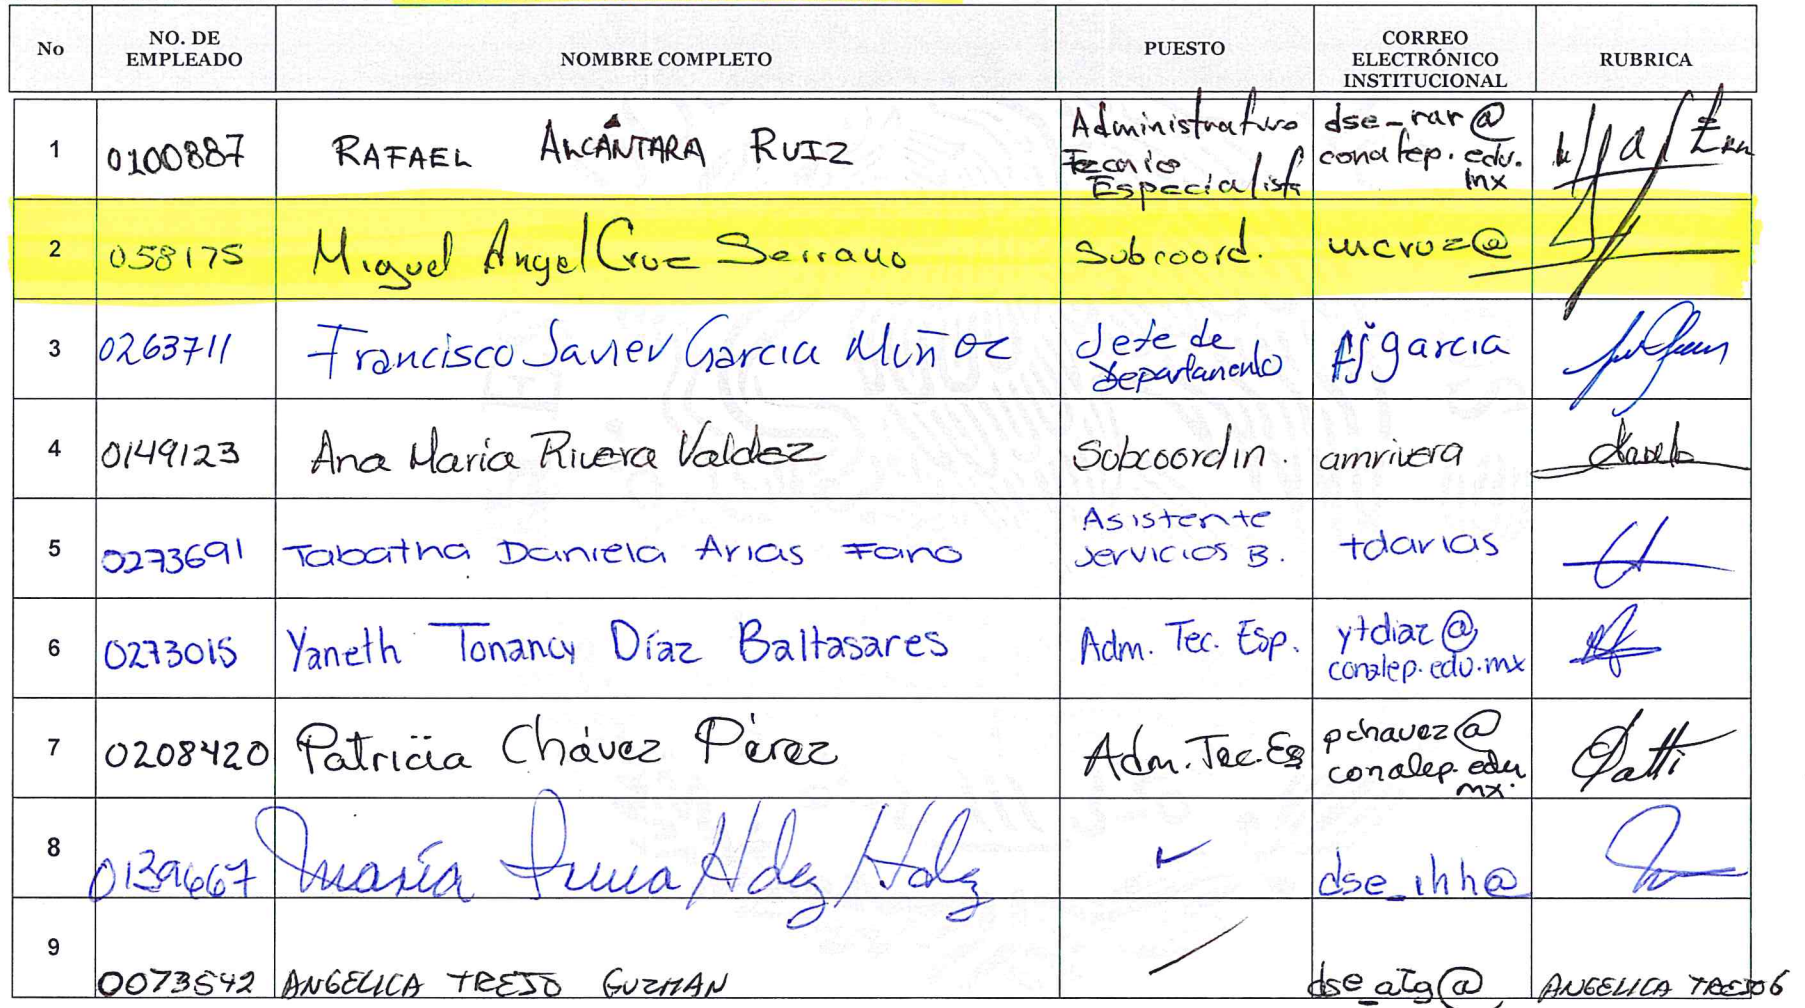 No NO. DE EMPLEADO NOMBRE COMPLETO PUESTO CORREO ELECTRÓNICO INSTITUCIONAL RUBRICA
1 0100887 RAFAEL ALCÁNTARA RUIZ Administrativo Tecnico Especialista dse_rar@conalep.edu.mx
2 058175 Miguel Angel Cruz Serrano Subcoord. mcruz@
3 0263711 Francisco Javier Garcia Muñoz Jefe de Departamento fjgarcia
4 0149123 Ana Maria Rivera Valdez Subcoordin. amrivera
5 0273691 Tabatha Daniela Arias Fano Asistente Servicios B. tdarias
6 0273015 Yaneth Tonancy Díaz Baltasares Adm. Tec. Esp. ytdiaz@conalep.edu.mx
7 0208420 Patricia Chávez Pérez Adm. Tec. Es pchavez@conalep.edu.mx. Patti
8 0139667 María Irma Hdez Hdez ✓ dse_ihh@
9 0073542 ANGELICA TREJO GUZMAN dse_atg@ ANGELICA TREJO G